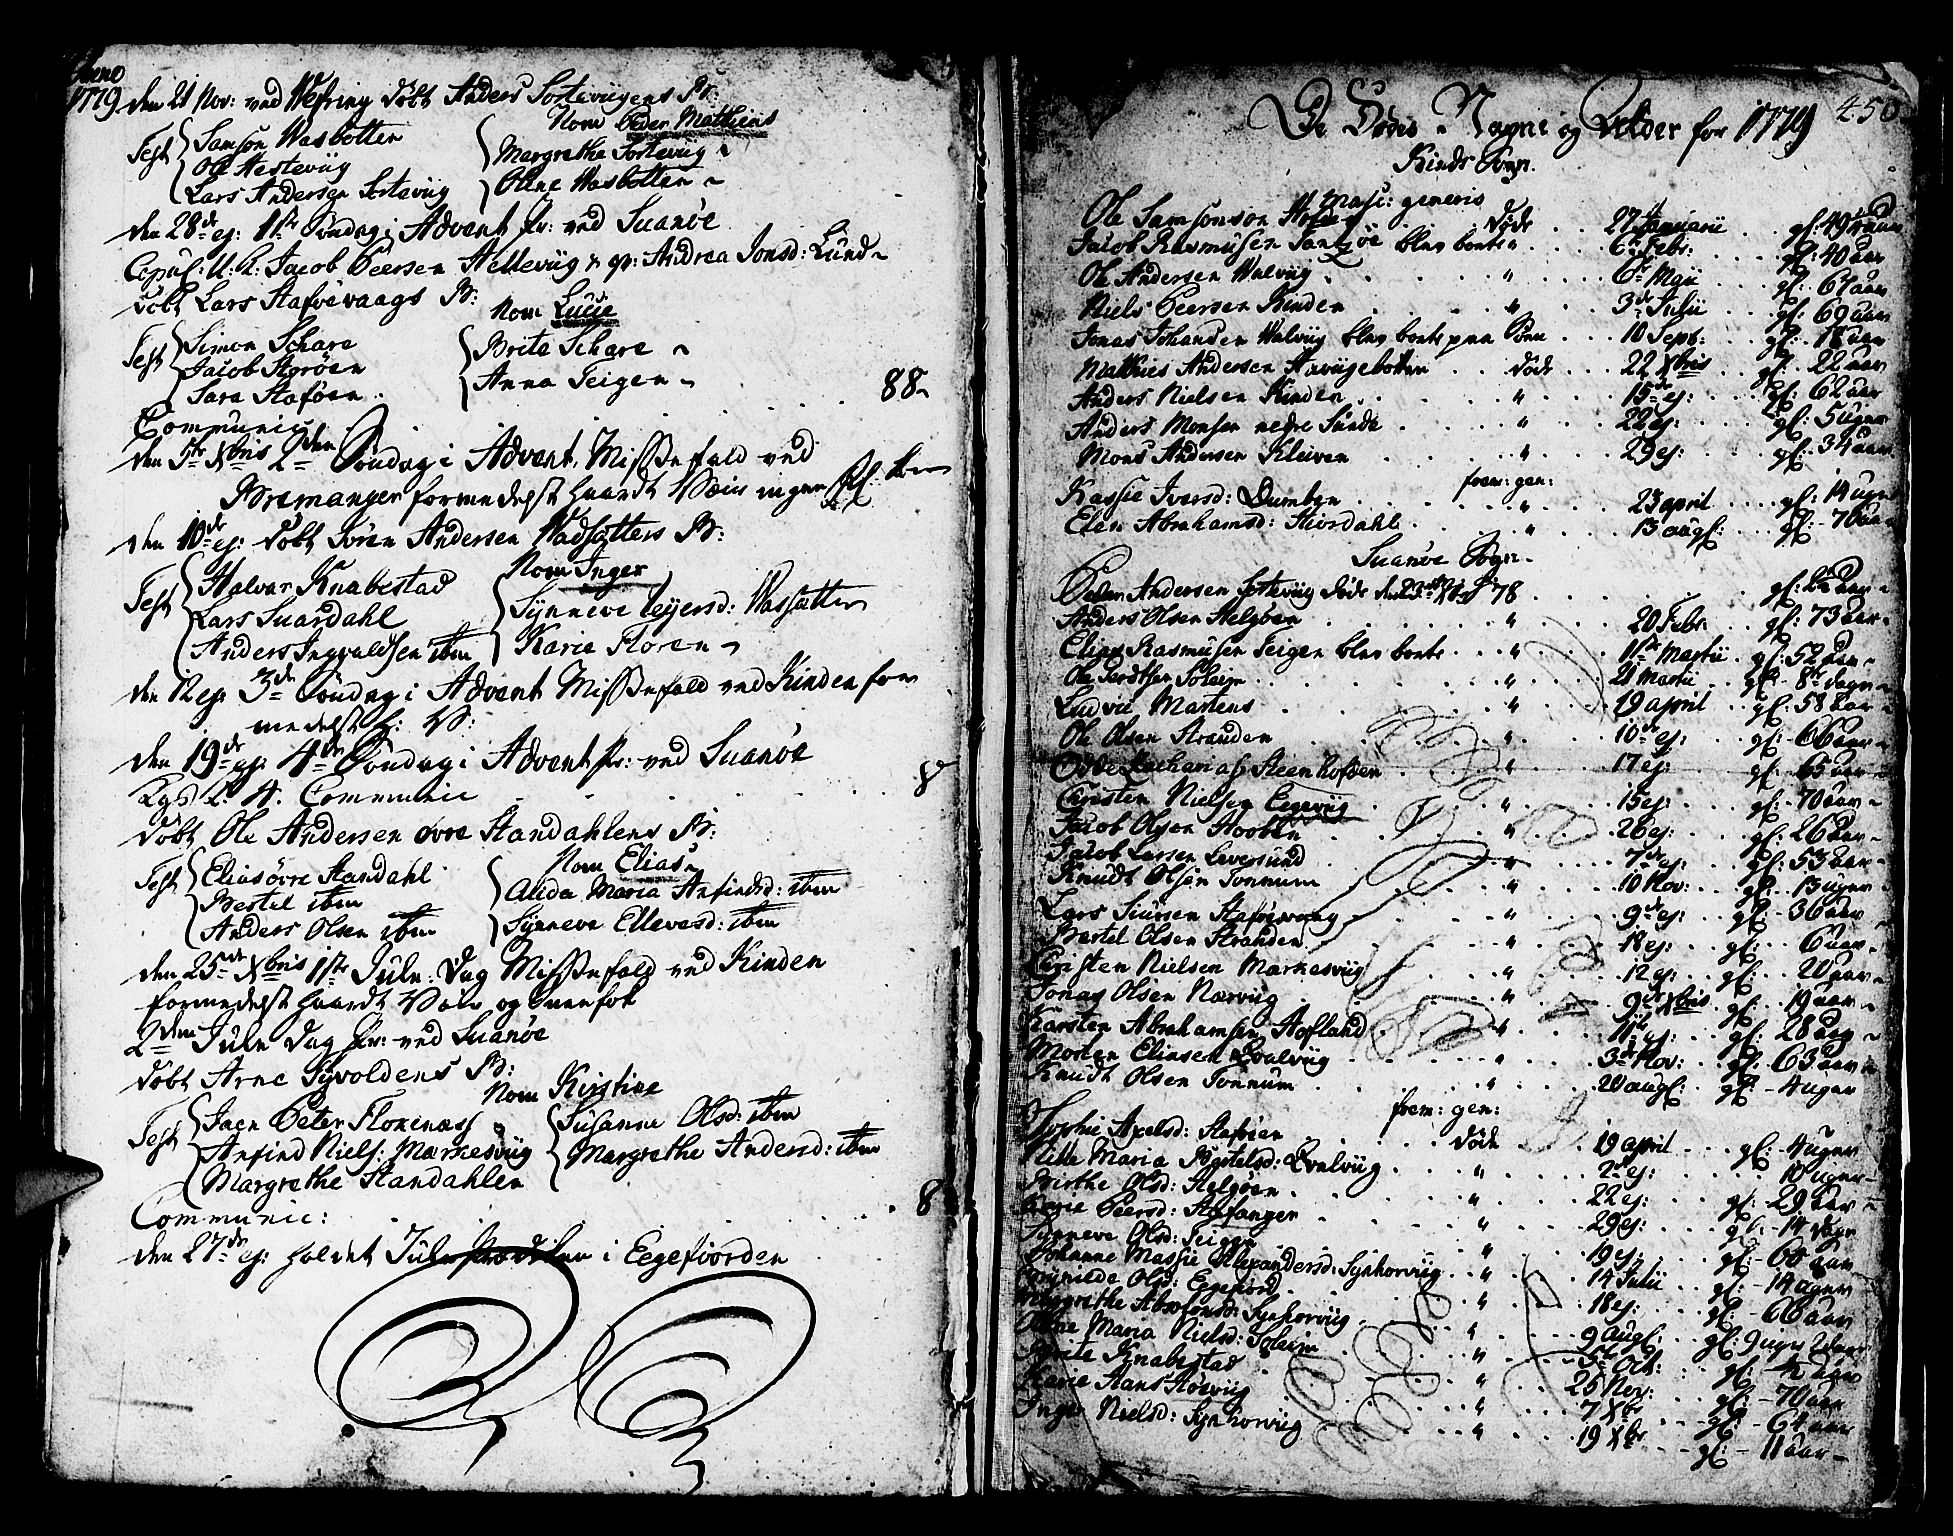 Anno
1779 den 21 Nov: ved Wefring døbt Anders Sortevigens B:
Nom Peder Mathiens
Test Samson Wasbotten
Ole Hestevüg
Lars Andersen Sortevüg
Margrethe Sortevüg
Oline Wasbotten
den 28de ej: 1ste Søndag i Advent pr: ved Suanöe
Copul: U.K: Jacob Peersen Hellevüg & qv: Andrea Jonsd: Lund
døbt Lars Staføevaags B:
Nom Lucie
Test Simon Schare
Jacob Agrøen
Sara Staføen
Brite Schare
Anna Teigen
Communic: 88
den 5te Xbris 2den Søndag i Advent Missefald ved
Bremanger formedelst haardt Væir
den 10de ej: døbt Søren Andersen Wadsætters B:
Nom Inger
Test Halvar Knabestad
Lars Suardahl
Anders Ingvaldsen ibm
Synneve Wassætter
Karie Floren
den 12 ej: 3de Søndag i Advent Missefald ved Kinden for
medelst h: V:
den 19de ej: 4de Søndag i Advent pr: ved Suanöe
Communic 8
døbt Ole Andersen øvre Standahlens B:
Nom Elias
Test Elias øvre Standahl
Bertil ibm
Anders Olsen ibm
Alida Maria Anfindsd: ibm
Synneve Ellevesd: ibm
den 25de Xbris 1ste Jule Dag Missefald ved Kinden
formedelst haardt Væir og Sneefok
2den Jule Dag pr: ved Suanöe
døbt Arne Syvoldens B:
Nom Kirstine
Test Jaen Peter Florenæss
Anfind Niels: Markesvüg
Margrethe Standahlen
Susanne Olsd: ibm
Margrethe Andersd: ibm
Communic: 8
den 27de ej: holdet Juleprædiken i Eegefiorden
450
De Dødes Nagne og Alder for 1779
Kinds Sogn
Masc: generis
Ole Samsonson døde 27 Januarii gl: 49 aar
Jacob Rasmusen blev borte 6te Febr: gl: 40 aar
Ole Andersen Walvüg " 6te Maii gl: 67 aar
Niels Peersen Kinden " 3de Julii gl: 69 aar
Jonas Johansen Walvüg blev borte paa Søen 10 Sept: gl: 18 aar
Mathies Andersen Havigebotten døde 22 Xbris gl: 22 aar
Anders Nielsen Kinden " 15de ej: gl: 62 aar
Anders Monsen nedre Sunde " 22 ej: gl: 5 uger
Mons Andersen Kleiven " 29 ej: gl: 34 aar
fem: gen:
Kassie Iversd: Domben " 23 april gl: 14 uger
Elen Abrahamsd: Stordahl " 13 augl: gl: 70 aar
Suanøe Sogn
Peder Andersen Sortevüg døde 78
Anders Olsen Helgøen " 20 Febr: gl: 73 aar
Elias Rasmusen Teigen blev borte " 11te Martii gl: 52 aar
Ole Soleim " 21 Martii gl: 8te dage
Ludvic Martens " 19 april gl: 58 aar
Ole Olsen Stranden " 10de ej: gl: 66 aar
Odde Zacharias Steenholden " 17 ej: gl: 65 aar
Christen Nielsen Eegevüg " 15 ej: gl: 70 aar
Jacob Olsen Hooben " 26 ej: gl: 26 aar
Jacob Larsen Leversund " 7de ej: gl: 53 aar
Knudt Olsen Tonnum " 10 Nov: gl: 13 uger
Lars Siursen Staføevaag " 9de ej: gl: 36 aar
Bertel Olsen Stranden " 18 ej: gl: 6 aar
Christen Nielsen Markesvüg " 12 ej: gl: 20 aar
Jonas Olsen Nærvüg " 9de Xbris gl: 19 aar
Karsten Abrahamsen Hofland " 11te ej: gl: 28 aar
Morten Eliasen Qvalvüg " 3de Nov: gl: 63 aar
Knudt Olsen Tonnum " 20 augl: gl: 4 uger
fem: gen:
Sophie Axelsd: Staføen døde 19 april gl: 4 uger
Maria Bertelsd: Qvalvüg " 2de ej: 10 uger
Birthe Olsd: Helgøen " 22 ej: gl: 29 aar
Karie Peersd: Stafanger " 29 ej: gl: 14 dage
Synneve Olsd: Teigen " 19 ej: gl: 60 aar
Johanne Massie Alexandersd: Synhorvüg " 14 Julii gl: 14 ager
Olsd: Eegefiord " 18 ej: gl: 66 aar
Margrethe Absolonsd: Synhorvüg " 9 augl: gl: 9 uger 2 dage
Oline Maria Nielsd: Soleim " 5te Oct: gl: 4 aar
Knabestad " 25 Nov: gl: 70 aar
Marie Hansd: " 7 Xbr gl: 64 aar
Inger Nielsd: Synhorvüg " 19 Xbr gl: 11 aar